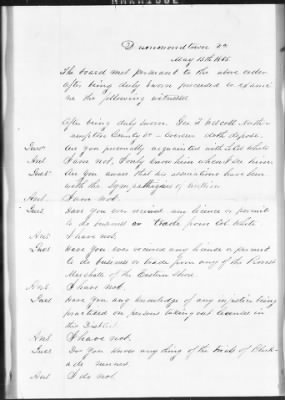 Drummondtown Va
May 15th 1865
The board met persuant to the above order
after being duly sworn proceeded to exami
ne the following witnesses
After being duly sworn Geo F Wilcott North
ampton County Va doth depose
Ques Are you personally acquainted with Col White
Ans I am not, I only know him when I see him
Ques Are you aware that his associations have been
with the sympathizers of
Ans I am not
Ques Have you ever received any licence or permit
to do business or trade from Col White
Ans I have not
Ques Have you ever received any licence or permit
to do business or trade from any of the Provost
Marshalls of the Eastern Shore
Ans I have not
Ques Have you any knowledge of any injustice being
practised on persons taking out licences in
this District
Ans I have not
Ques Do you know any thing of the trials of Block-
ade runners
Ans I do not